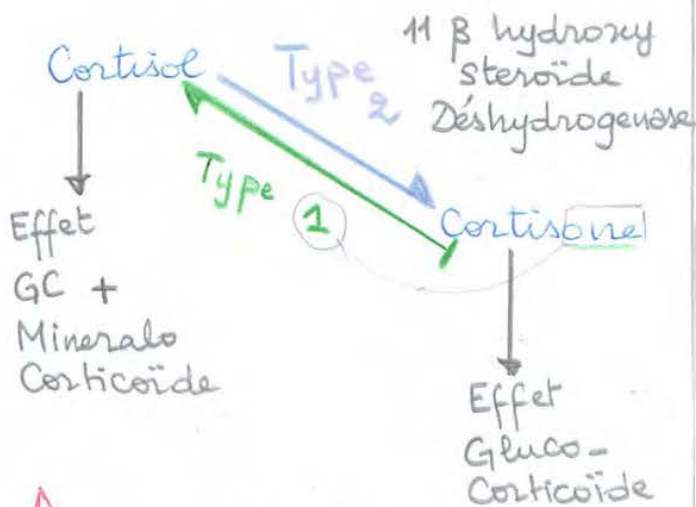 Cortisol
Type
2
11 β hydroxy
steroïde
Déshydrogenase
Type
1
Cortisone
Effet
GC +
Mineralo
Corticoïde
Effet
Gluco-
Corticoïde